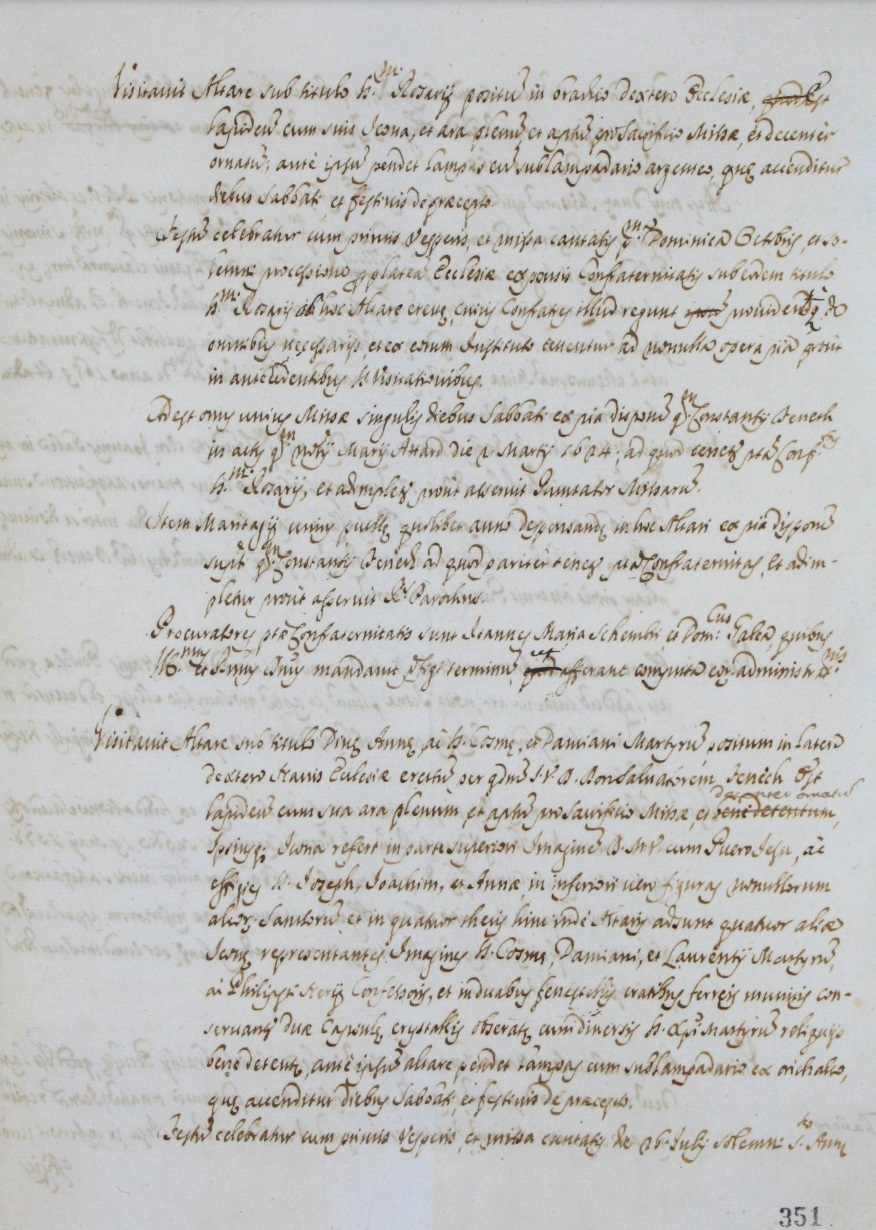 Visitavit Altare sub titulo S.mi Rosarij positũ in brachio dextero Ecclesiæ, Est
lapideũ cum suis Icona, et ara plenũ, et aptũ pro Sacrificio Missæ, et decenter
ornatũ; antè ipsũ pendet lampas cũ sublampadario argenteo, quę accenditur
diebus Sabbati et festivis de præcepto.
Festũ celebratur cum primis Vesperis, et missa cantatis p.a Dominica Octobris, et so-
lemni processione p platea Ecclesiæ expensis Confraternitatis sub eodem titulo
S.mi Rosarij in hoc Altare erectę, cuius Confratres illud regunt providentq; de
omnibus necessarijs, et ex eorum Instituto tenentur ad nonnulla opera pia prout
in antecedentibus Visitationibus.
Adest onus unius Missæ singulis diebus Sabbati ex pia dispone q.m Constantij Fenech
in actis q.m Notij Marij Attard die 2 Martij 1624, ad quod tenet pta Conf.tas
S.mi Rosarij, et adimplet prout asseruit Puntator Missarũ.
Item Maritagij unius puellę quolibet anno dispensandę in hoc Altari ex pia dispone
supti q.m Constantij Fenech ad quod pariter tenet pta Confraternitas, et adim-
pletur prout asseruit R. Parochus.
Procuratores ptæ Confraternitatis sunt Joannes Maria Schembri, et Dom.cus Galea, quibus
Ill.mus et R.mus Dñus mandavit terminũ ut afferant computa eor. administr.nis
Visitavit Altare sub titulo Divę Annę, ac S. Cosmę, et Damiani Martyrũ positum in latere
dextero Navis Ecclesiæ erectũ per qdm J.V.D. Bonsalvatorem Fenech Est
lapideum cum sua ara plenum, et aptũ pro Sacrificio Missæ, et decenter ornatũ bene detentum,
Ipsiusq; Icona refert in parte superiori Imaginẽ B.M.V. cum Puero Jesu, ac
effigies S. Joseph, Joachim, et Annæ, in inferiori vero figuras nonnullorum
alior. Sanctorũ, et in quatuor thecis hinc inde Altaris adsunt quatuor aliæ
Iconę representantes Imagines S. Cosmę, Damiani, et Laurentij Martyrũ,
ac Philippi Nerij Confessoris, et in duabus fenestellis cratibus ferreis munitis con-
servantr duæ Capsulę crystallis obseratę cum diversis S. Xpi Martyrũ reliquijs
bene detentę, antè ipsũ altare pendet lampas cum sublampadario ex orichalco,
quę accenditur diebus Sabbati, et festivis de præcepto.
Festũ celebratur cum primis Vesperis, et missa cantatis die 26 Julij solemni S.to Annę
351